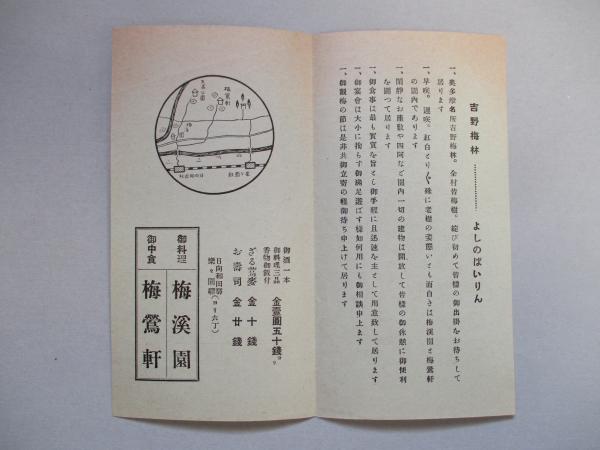 吉野梅林………………よしのばいりん
一、奥多摩名所吉野梅林。全村皆梅樹。綻び初めて皆様の御出掛をお待ちして
居ります
一、早咲。遅咲。紅白とり〲殊に老樹の姿態いとも面白きは梅溪園と梅鶯軒
の園内であります
一、閑静なお座敷や四阿など園内一切の建物は開放して皆様の御休憩に御便利
を圖つて居ります
一、御食事は最も實質を旨とし御手軽に且迅速を主として用意致して居ります
一、御宴會は大小に拘らず御滿足遊ばす様如何用にも御相談申上ます
一、御觀梅の節は是非共御立寄の程御待ち申上げて居ります
御酒一本
御料理三品
香物御飯付
金壹圓五十錢ヨリ
ざる蕎麥 金十錢
お壽司 金廿錢
日向和田驛
樂々園驛(ヨリ六丁)
御料理 梅溪園
御中食 梅鶯軒
梅鶯軒
日向和田